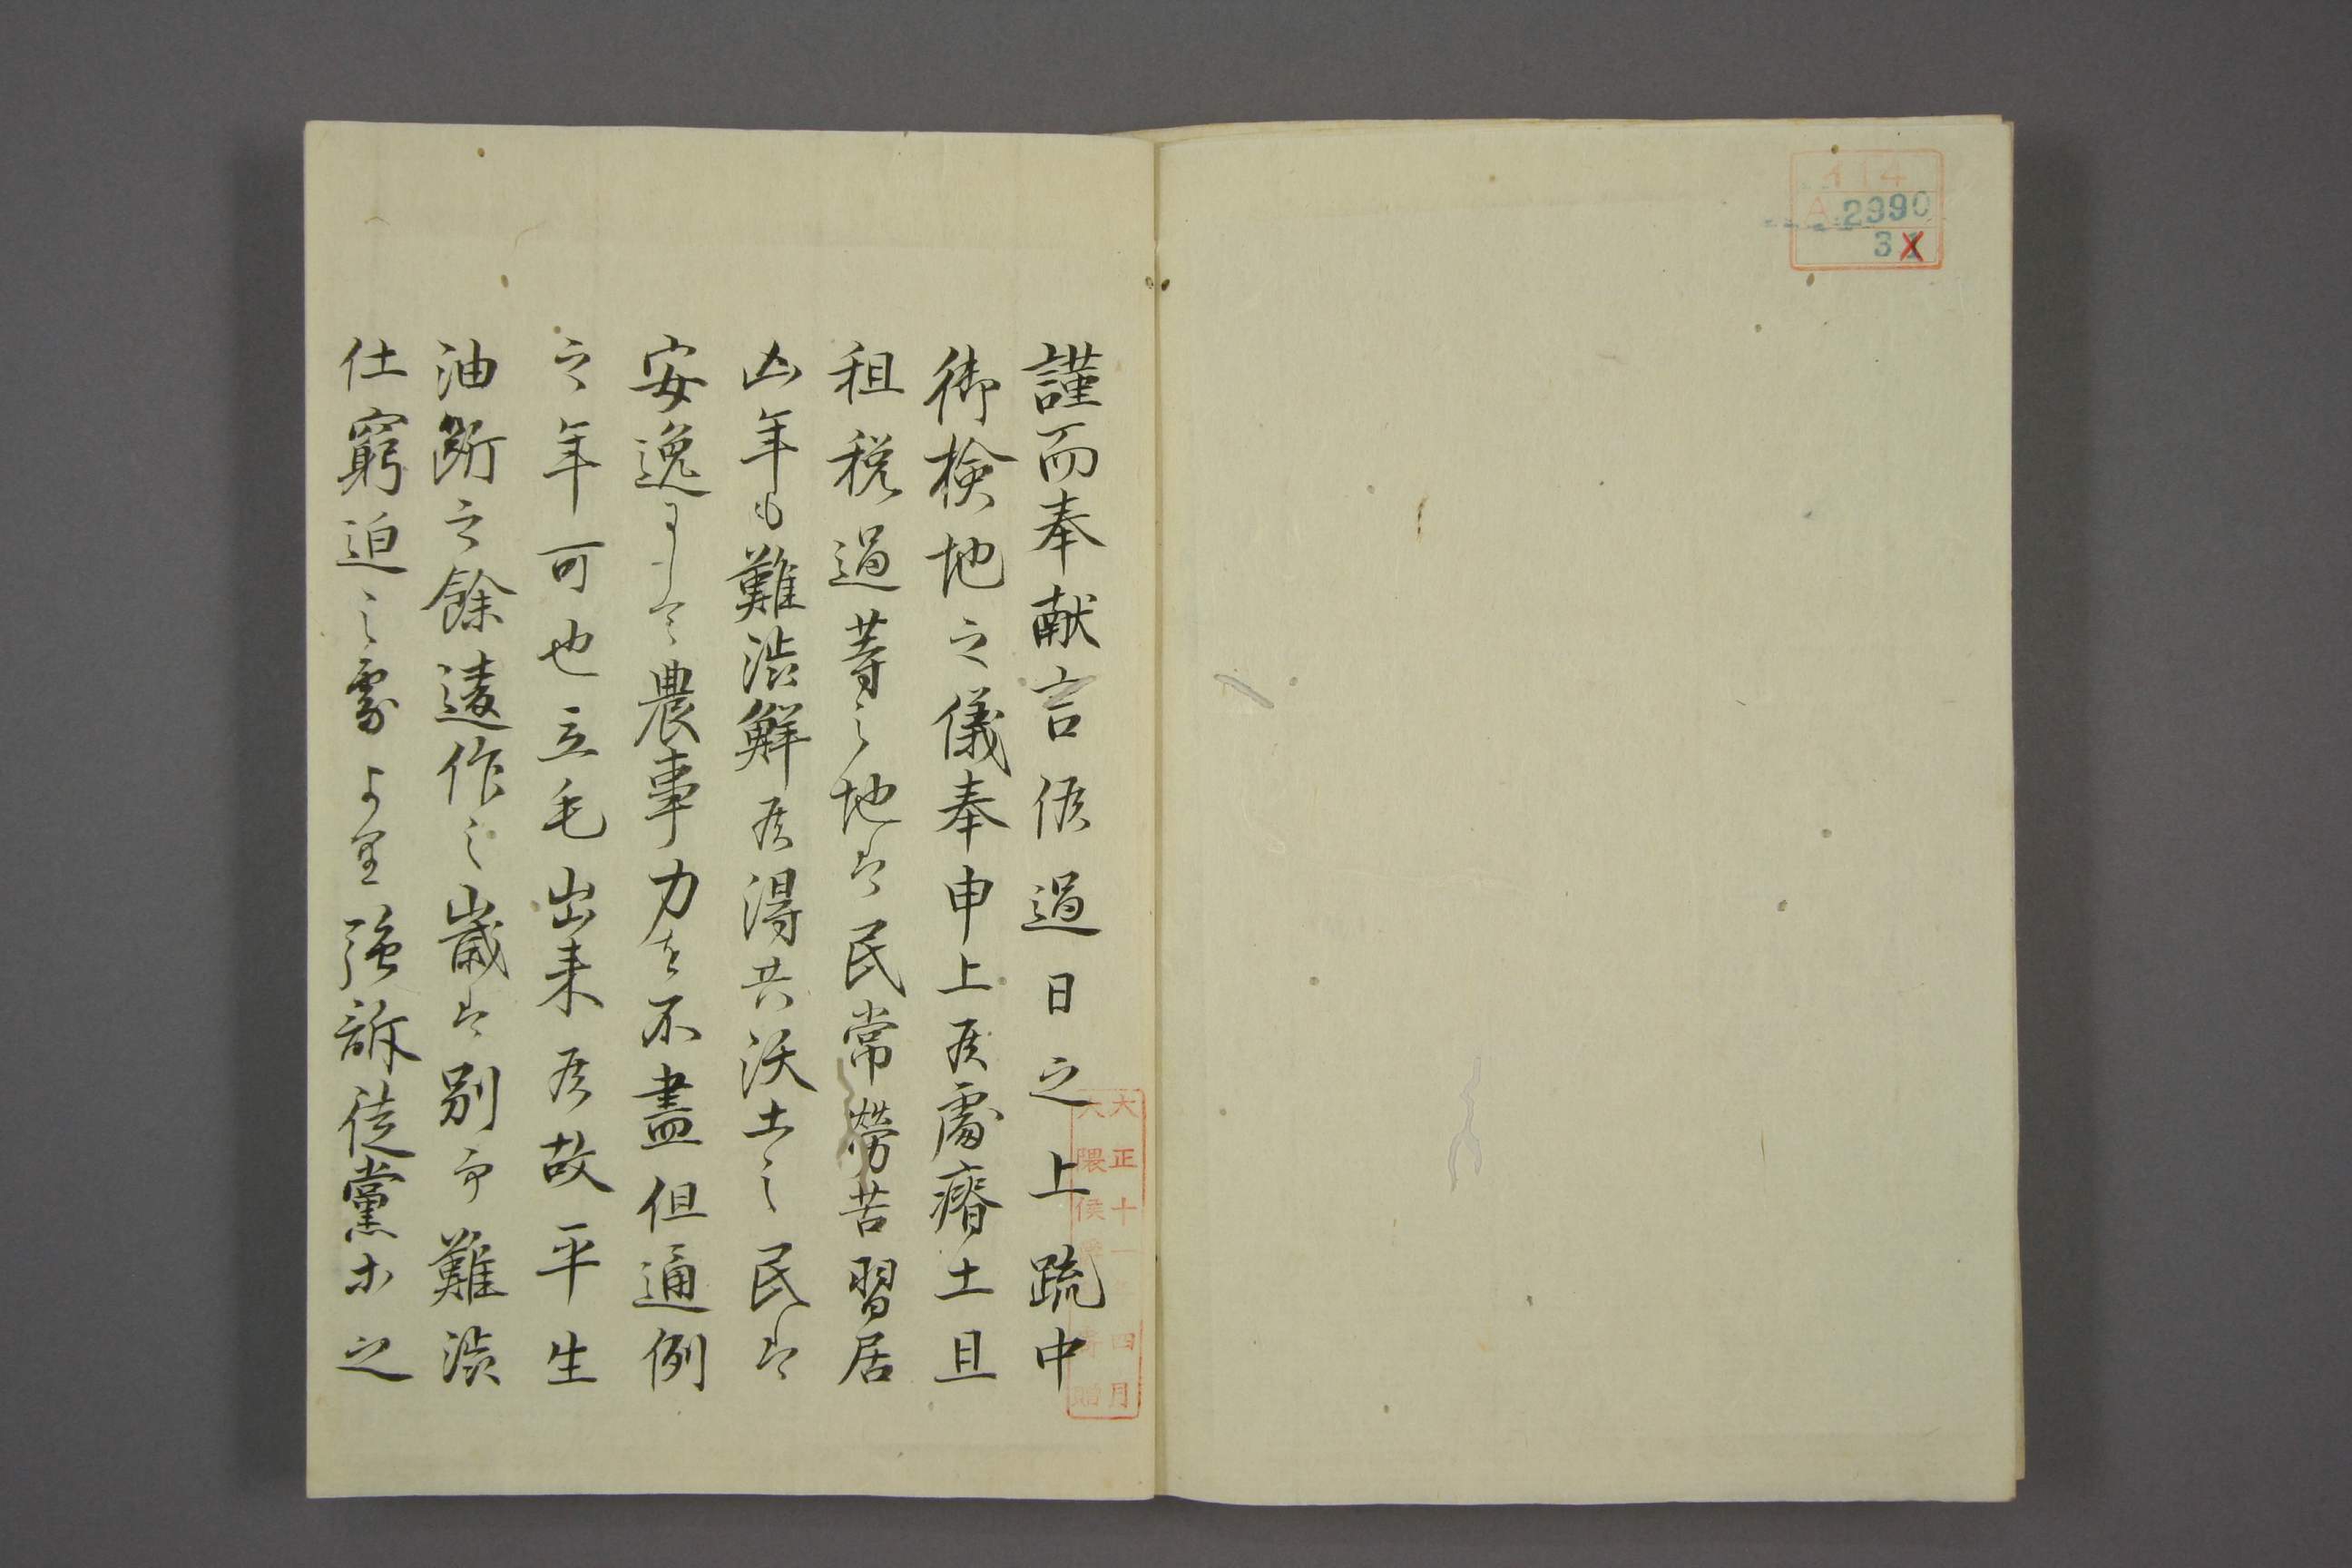 謹而奉献言候過日之上疏中
御検地之儀奉申上候處瘠土且
租税過等之地は民常労苦習居
凶年も難渋鮮候得共沃土之民は
安逸農事力を不盡但通例
之年可也立毛出来候故平生
油断之餘違作之歳は別而難渋
仕窮迫之處より強訴徒黨ホ之
大正十一年四月
大隈侯
贈
114
A 2990
3